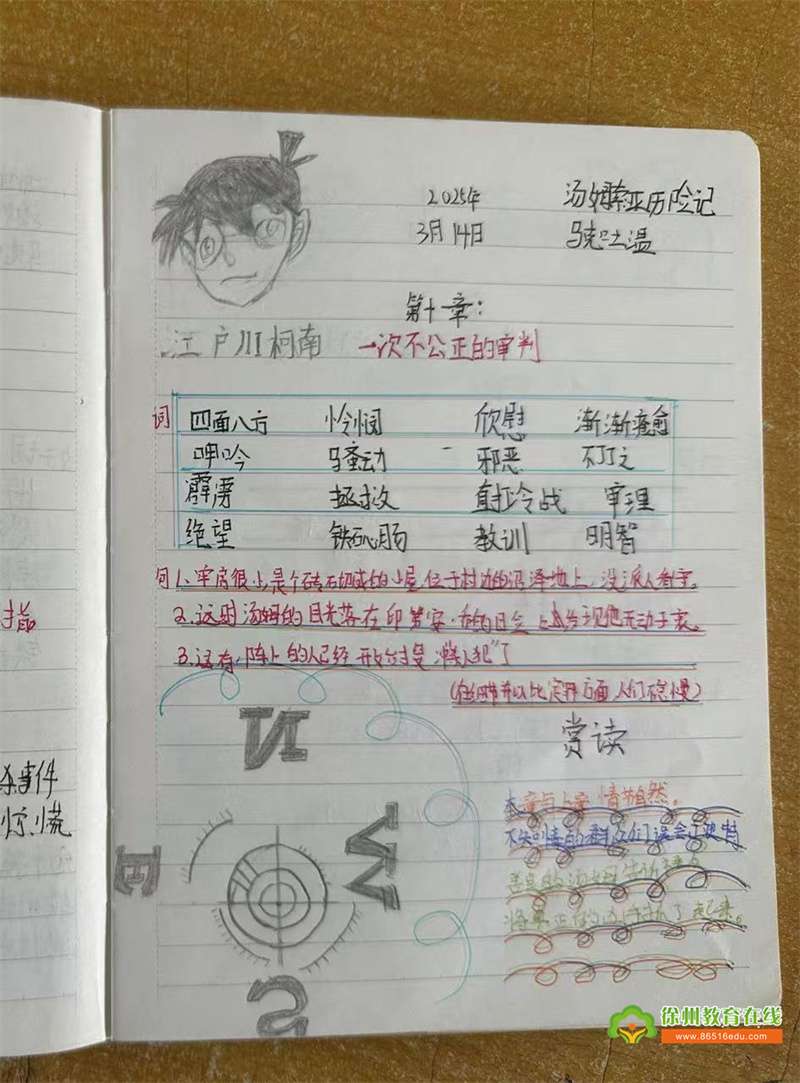 2025年 汤姆索亚历险记
3月14日 马克吐温
第十章：
江户川柯南 一次不公正的审判
词 四面八方 怜悯 欣慰 渐渐痊愈
呻吟 骚动 邪恶 不了了之
霹雳 拯救 直打冷战 审理
绝望 铁石心肠 教训 明智
句 1、牢房很小，是个砖石切成的小屋，位于村边的沼泽地上，没派人看守。
2、这时汤姆的目光落在印第安·乔的 上 发现他无动于衷。
3、还有 上的人已经开始 "犯"了
人们不怠慢）
赏读
本章与上章情节自然。
不知 的群众们误会了
善良的汤姆
将真正的凶手
指
杀事件
惊慌
N
W
E
S
徐州教育在线
www.86516edu.com